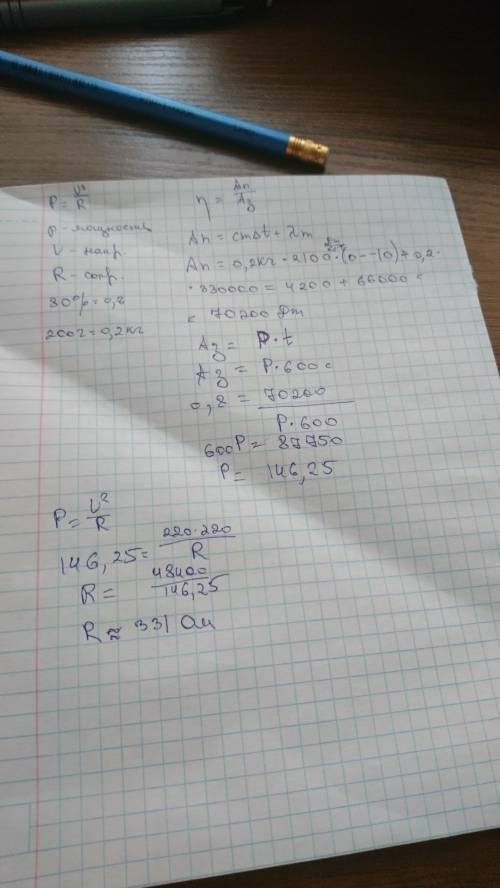 P = U²/R
P - мощность
U - напр.
R - сопр.
80% = 0,8
200г = 0,2кг
η = Aп/Aз
Aп = cmΔt + λm
Aп = 0,2кг · 2100 · (0 - -10) + 0,2 ·
· 330000 = 4200 + 66000 =
= 70200 Дж
Aз = P · t
Aз = P · 600 с
0,8 = 70200/P · 600
600P = 87750
P = 146,25
P = U²/R
146,25 = 220·220/R
R = 48400/146,25
R ≈ 331 Ом